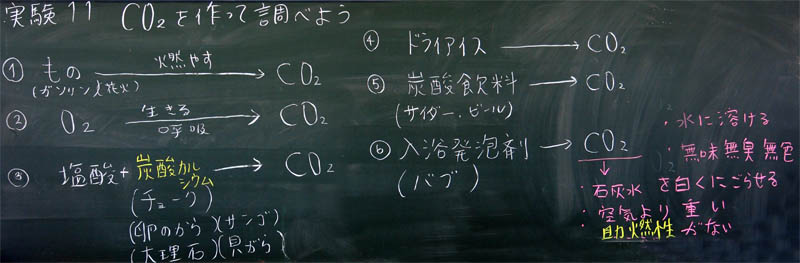 実験11 CO2を作って調べよう
① もの 燃やす → CO2
(ガソリン、花火)
② O2 生きる 呼吸 → CO2
③ 塩酸+炭酸カルシウム → CO2
(チョーク)
(卵のから)(サンゴ)
(大理石)(貝がら)
④ ドライアイス → CO2
⑤ 炭酸飲料 → CO2
(サイダー・ビール)
⑥ 入浴発泡剤 → CO2
(バブ)
・水に溶ける
・無味無臭無色
・石灰水を白くにごらせる
・空気より重い
・助燃性がない